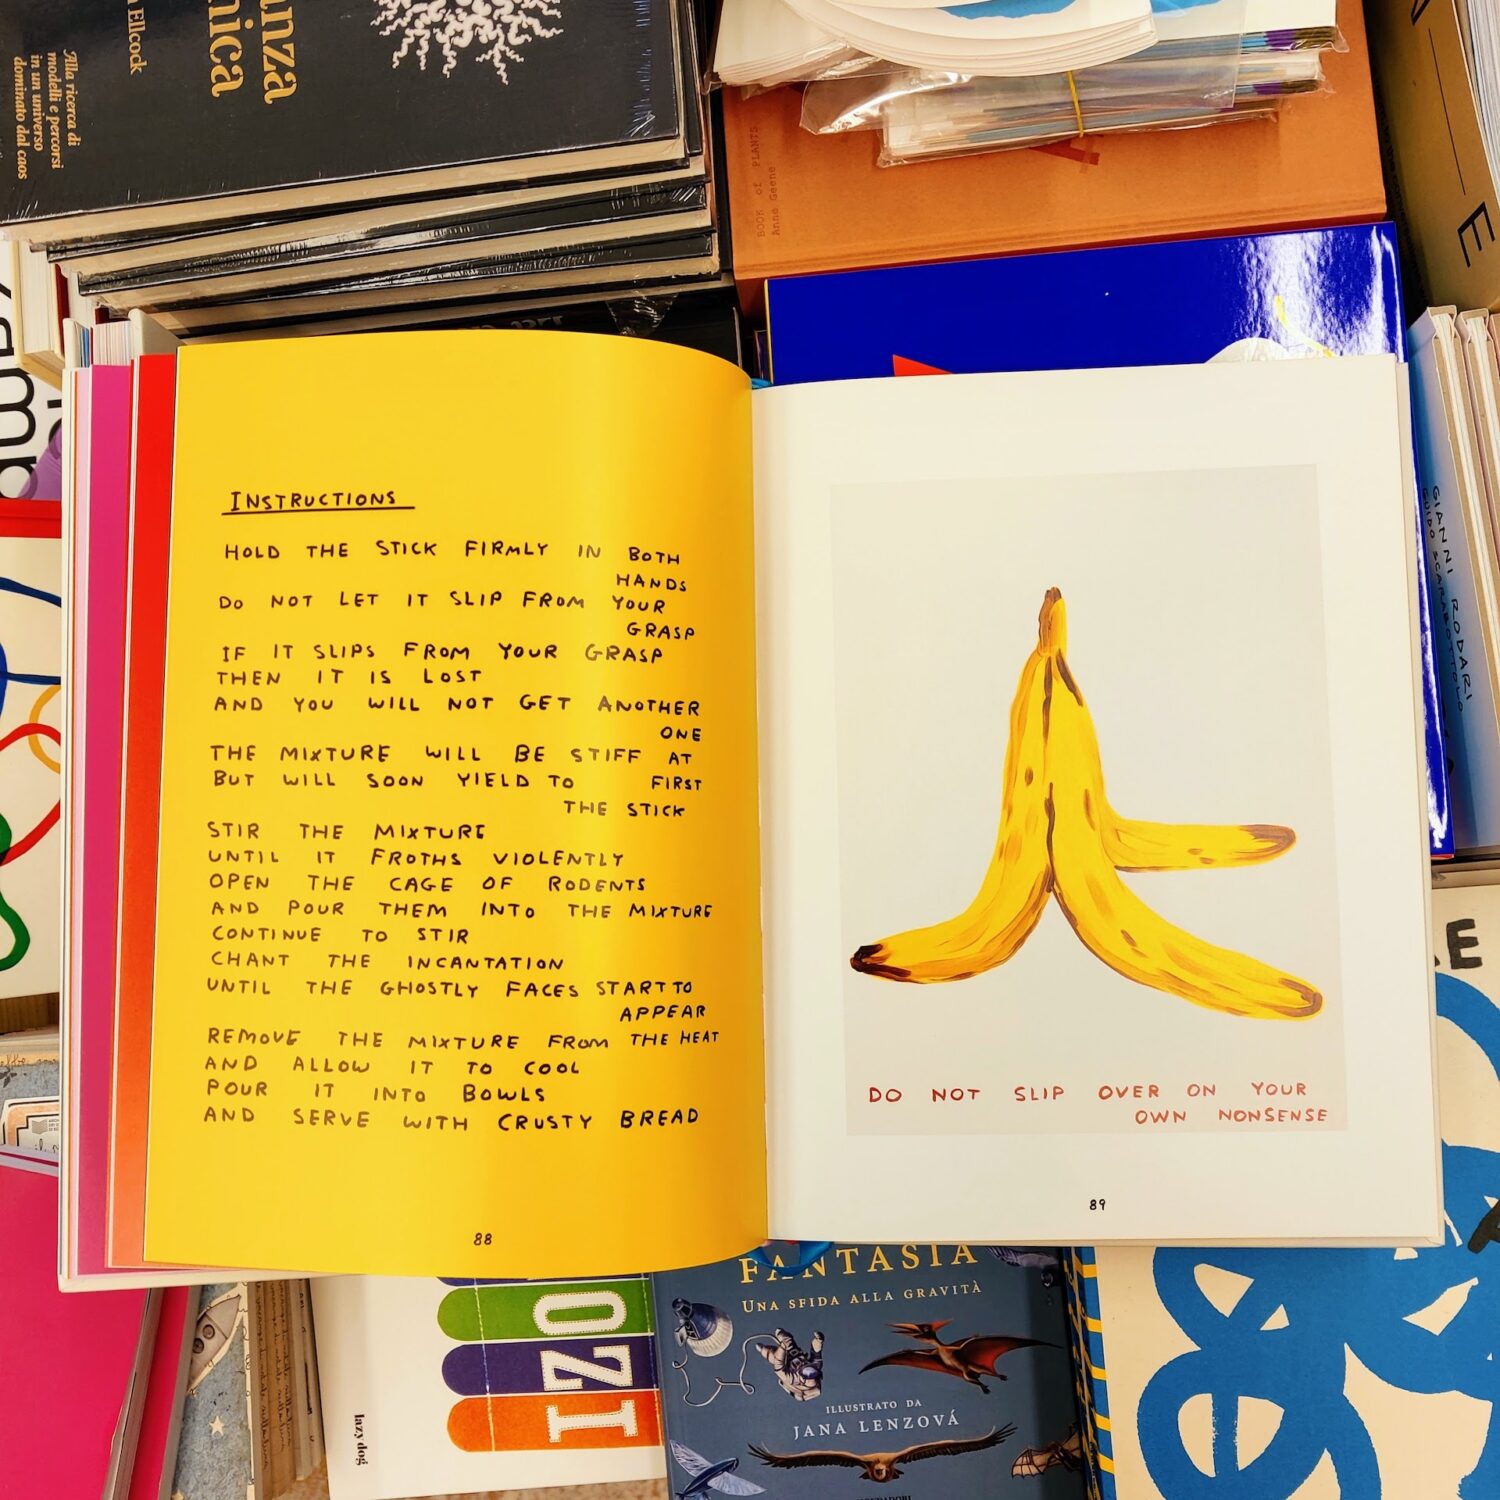 anza
nica
Ellcock
Alla ricerca di
modelli e percorsi
in un universo
dominato dal caos
BOOK of PLANTS
Anne Geene
INSTRUCTIONS
HOLD THE STICK FIRMLY IN BOTH
HANDS
DO NOT LET IT SLIP FROM YOUR
GRASP
IF IT SLIPS FROM YOUR GRASP
THEN IT IS LOST
AND YOU WILL NOT GET ANOTHER
ONE
THE MIXTURE WILL BE STIFF AT
BUT WILL SOON YIELD TO FIRST
THE STICK
STIR THE MIXTURE
UNTIL IT FROTHS VIOLENTLY
OPEN THE CAGE OF RODENTS
AND POUR THEM INTO THE MIXTURE
CONTINUE TO STIR
CHANT THE INCANTATION
UNTIL THE GHOSTLY FACES START TO
APPEAR
REMOVE THE MIXTURE FROM THE HEAT
AND ALLOW IT TO COOL
POUR IT INTO BOWLS
AND SERVE WITH CRUSTY BREAD
88
DO NOT SLIP OVER ON YOUR
OWN NONSENSE
89
GIANNI RODARI
GUIDO SCARABOTTOLO
IZIO
lazy dog
FANTASIA
UNA SFIDA ALLA GRAVITÀ
ILLUSTRATO DA
JANA LENZOVÁ